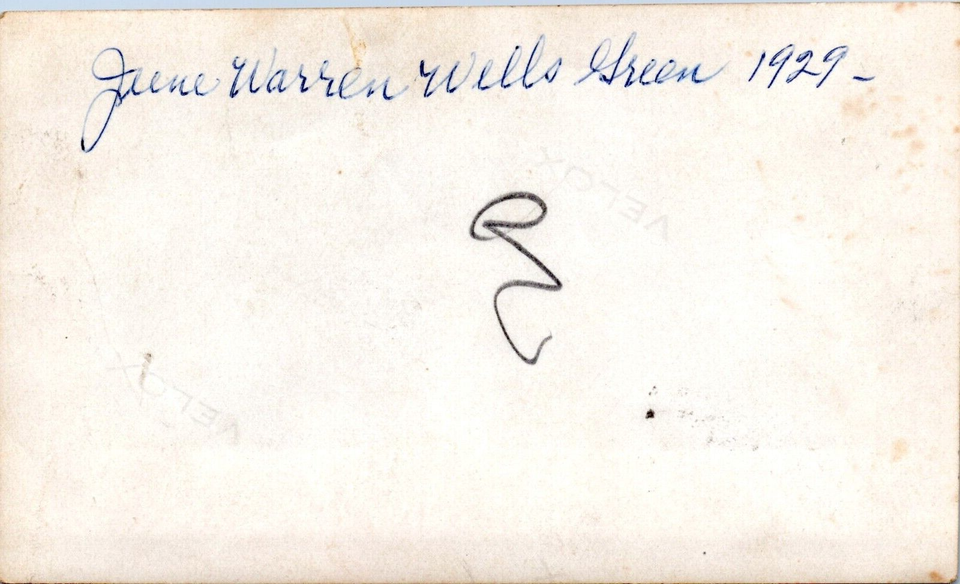 Jene Warren Wells Green 1929-
VELOX
VELOX